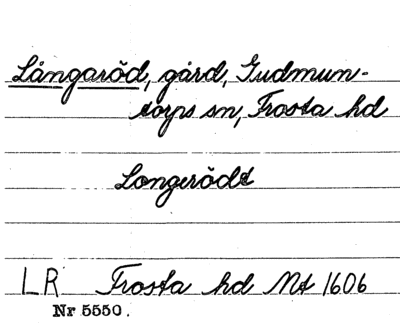 Långaröd, gård, Gudmun-
torps sn, Frosta hd
Longerödt
LR Frosta hd Mt 1606
Nr 5550.